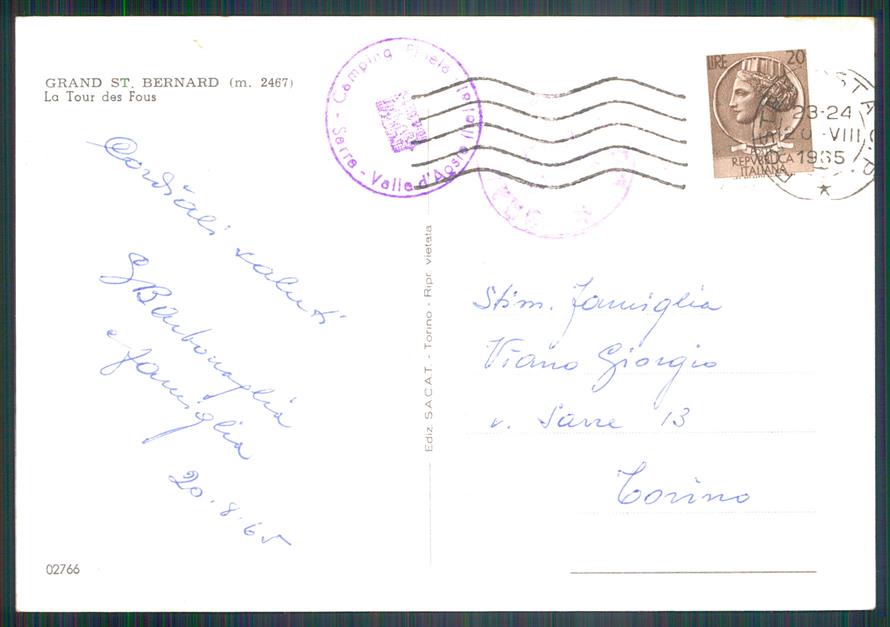 GRAND ST. BERNARD (m. 2467)
La Tour des Fous
Cordiali saluti
G Barbonaglia
e famiglia
20.8.65
02766
Ediz. S.A.C.A.T. - Torino - Ripr. vietata
Camping
Sarre - Valle d'Aosta
LIRE 20
REPVBBLICA
ITALIANA
23-24
20 VIII
1965
Stim. Famiglia
Viano Giorgio
v. Sarre 13
Torino